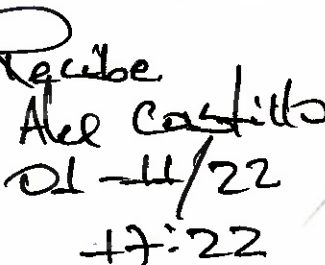 Recibe
Alee Castillo
01-11/22
17:22